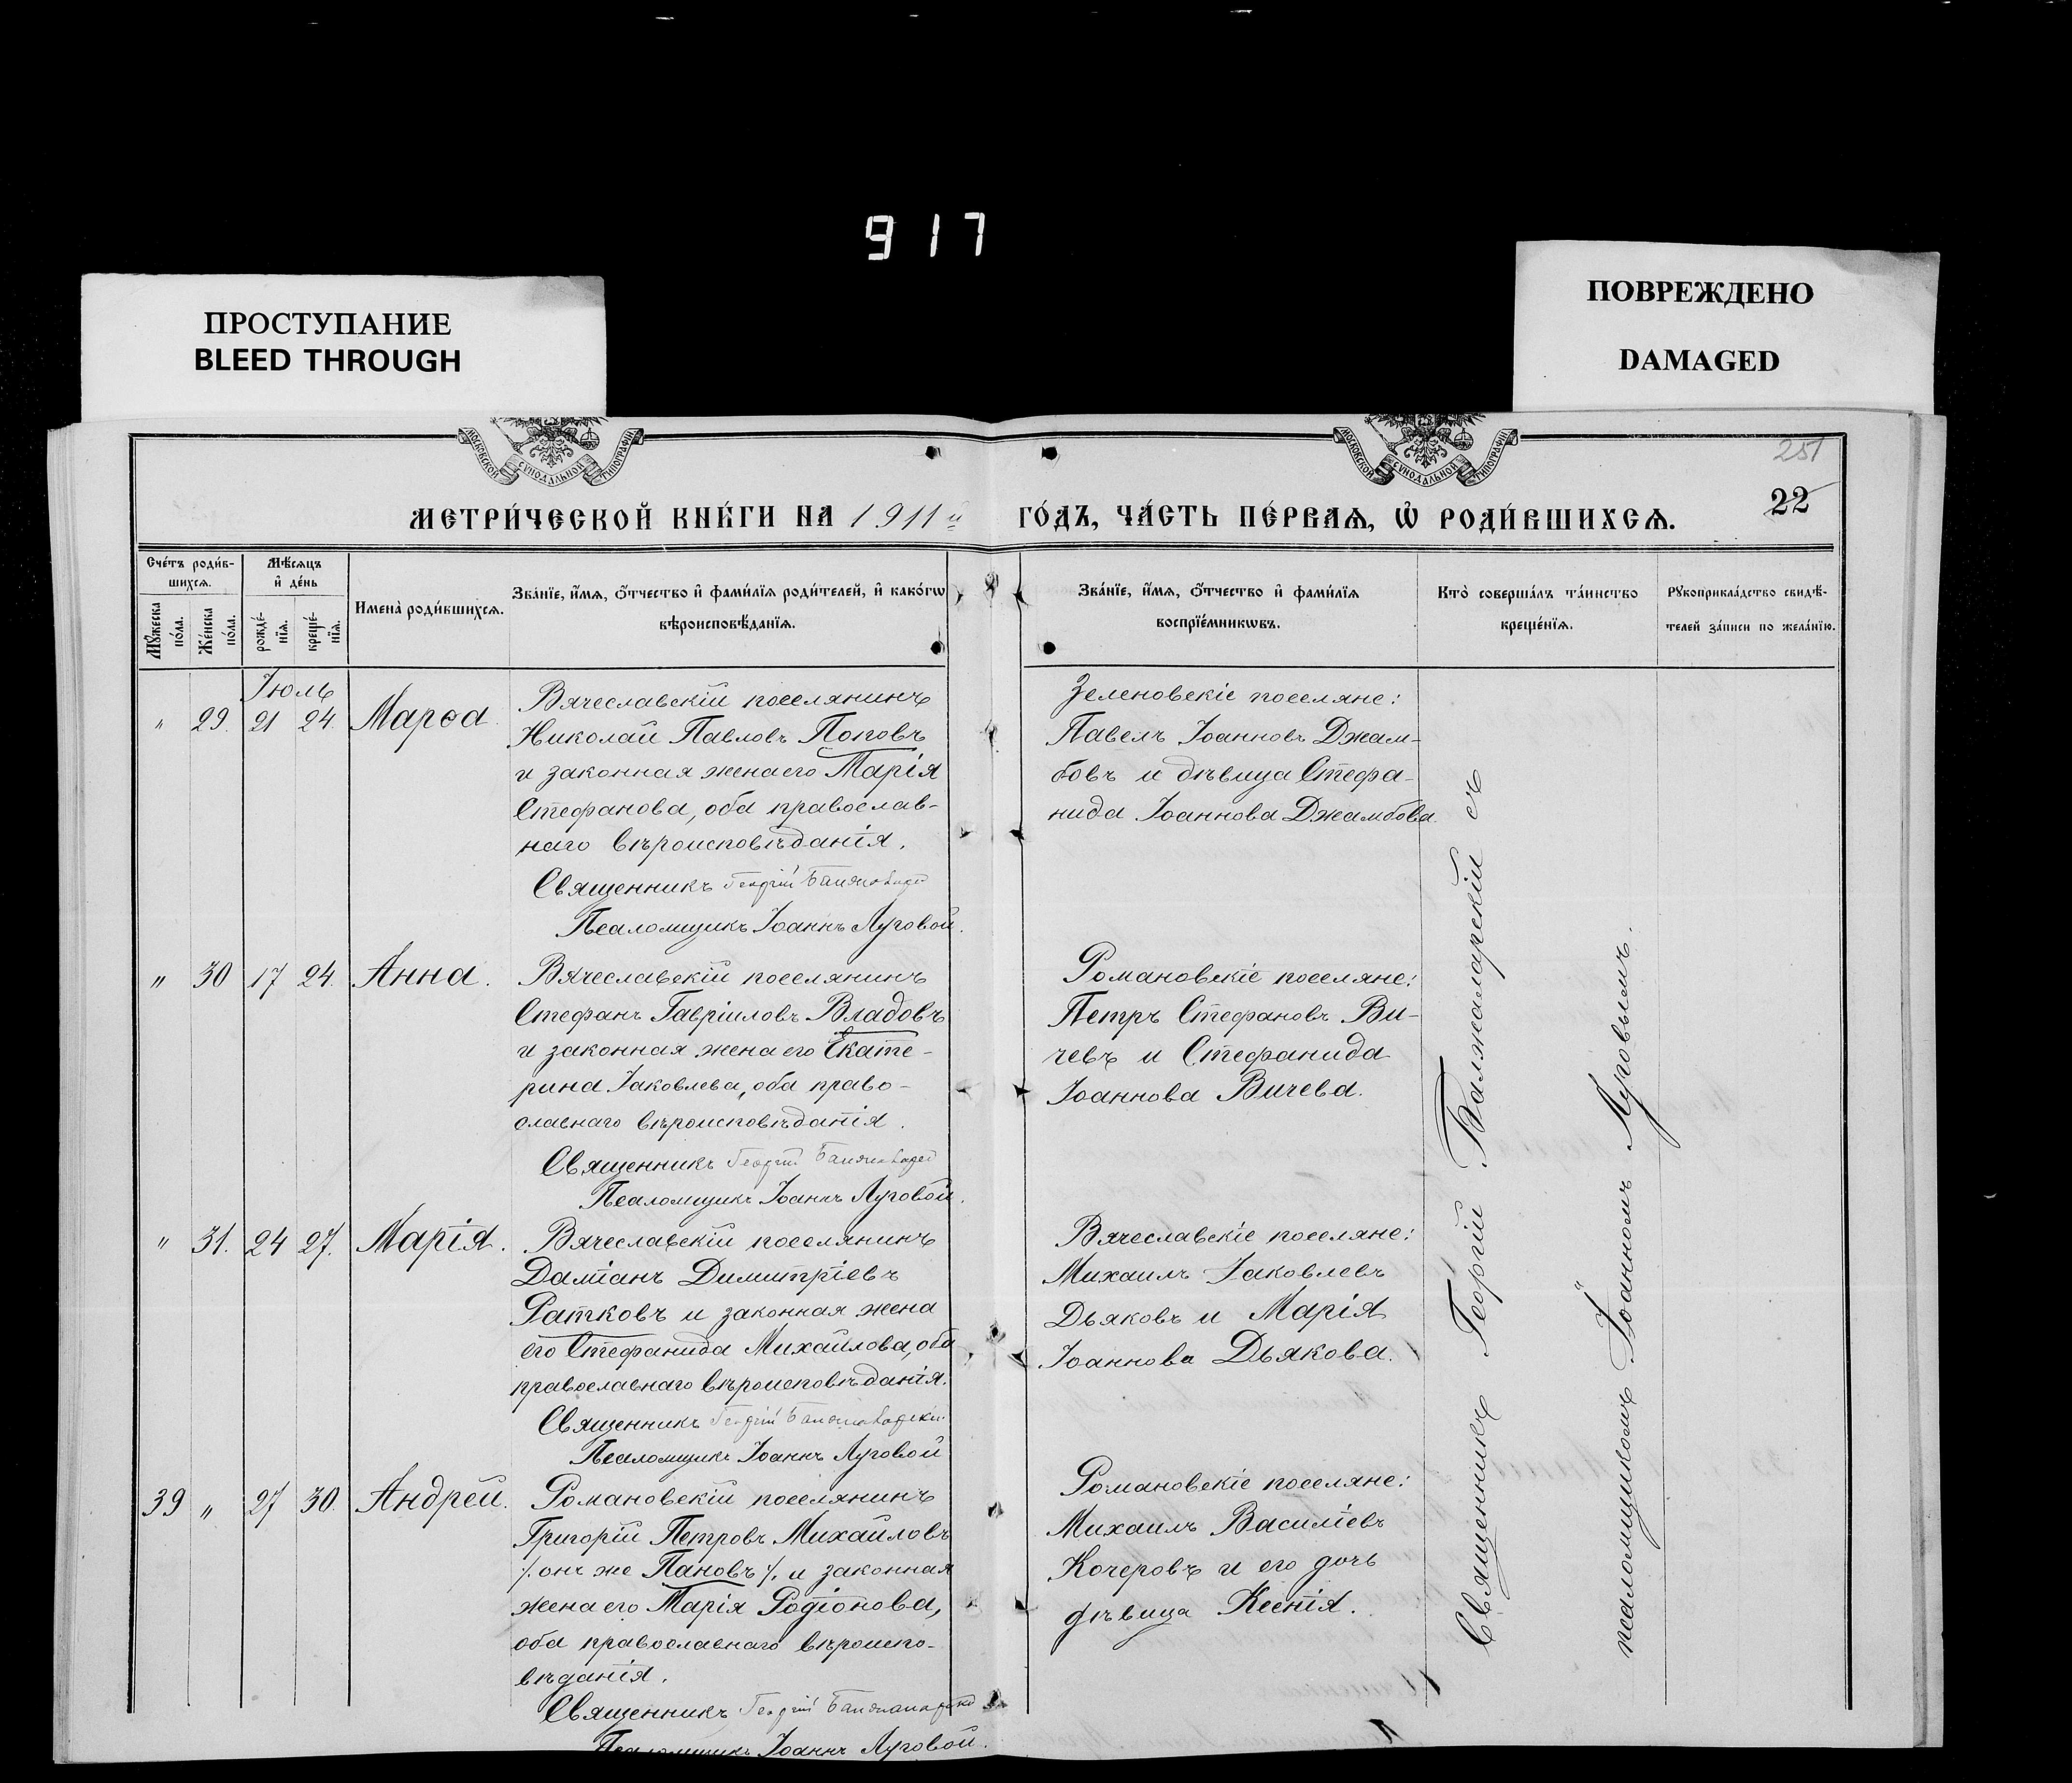 917
ПРОСТУПАНИЕ
BLEED THROUGH
ПОВРЕЖДЕНО
DAMAGED
МОСКОВСКОЙ СѴНОДАЛЬНОЙ ТИПОГРАФІИ
МОСКОВСКОЙ СѴНОДАЛЬНОЙ ТИПОГРАФІИ
251
22
МЕТРИ́ЧЕСКОЙ КНИ́ГИ НА 1911й ГО́ДЪ, ЧА́СТЬ ПЕ́РВАѦ, Ѡ РОДИ́ВШИХСѦ.
Сче́тъ роди́в-
шихсѧ.
Мꙋжеска по́ла.
Же́нска по́ла.
Мѣ́сѧцъ
и҆ де́нь
рожде́-
нїѧ.
креще́-
нїѧ.
Имена̀ роди́вшихсѧ.
Зва́нїе, и҆́мѧ, ѻ҆́тчество и҆ фами́лїѧ роди́телей, и҆ како́гѡ
вѣроисповѣ́данїѧ.
Зва́нїе, и҆́мѧ, ѻ҆́тчество и҆ фами́лїѧ
воспрїе́мникѡвъ.
Кто̀ соверша́лъ та́инство
креще́нїѧ.
Рꙋкоприкла́дство свидѣ́-
телей за́писи по жела́нїю.
Іюль
" 29. 21 24. Марѳа.
Вячеславскій поселянинъ
Николай Павловъ Поповъ
и законная жена его Марія
Стефанова, оба православ-
наго вѣроисповѣданія.
Священникъ Георгій
Псаломщикъ Іоаннъ Луговой.
Зеленовскіе поселяне:
Павелъ Іоанновъ Джам-
бовъ и дѣвица Стефа-
нида Іоаннова Джамбова
" 30 17 24. Анна.
Вячеславскій поселянинъ
Стефанъ Гавріиловъ Владовъ
и законная жена его Екате-
рина Іаковлева, оба право-
славнаго вѣроисповѣданія.
Священникъ Георгій
Псаломщикъ Іоаннъ Луговой.
Романовскіе поселяне:
Петръ Стефановъ Ви-
чевъ и Стефанида
Іоаннова Вичева.
" 31. 24 27. Марія.
Вячеславскій поселянинъ
Даміанъ Димитріевъ
Ратковъ и законная жена
его Стефанида Михайлова, оба
православнаго вѣроисповѣданія.
Священникъ Георгій
Псаломщикъ Іоаннъ Луговой
Вячеславскіе поселяне:
Михаилъ Іаковлевъ
Дьяковъ и Марія
Іоаннова Дьякова.
39 " 27 30. Андрей.
Романовскій поселянинъ
Григорій Петровъ Михайловъ
/. онъ же Пановъ /. и законная
жена его Марія Родіонова,
оба православнаго вѣроиспо-
вѣданія.
Священникъ Георгій
Псаломщикъ Іоаннъ Луговой.
Романовскіе поселяне:
Михаилъ Василіевъ
Кочеровъ и его дочь
дѣвица Ксенія.
Священникъ Георгій Балжаларскій съ
псаломщикомъ Іоанномъ Луговымъ.